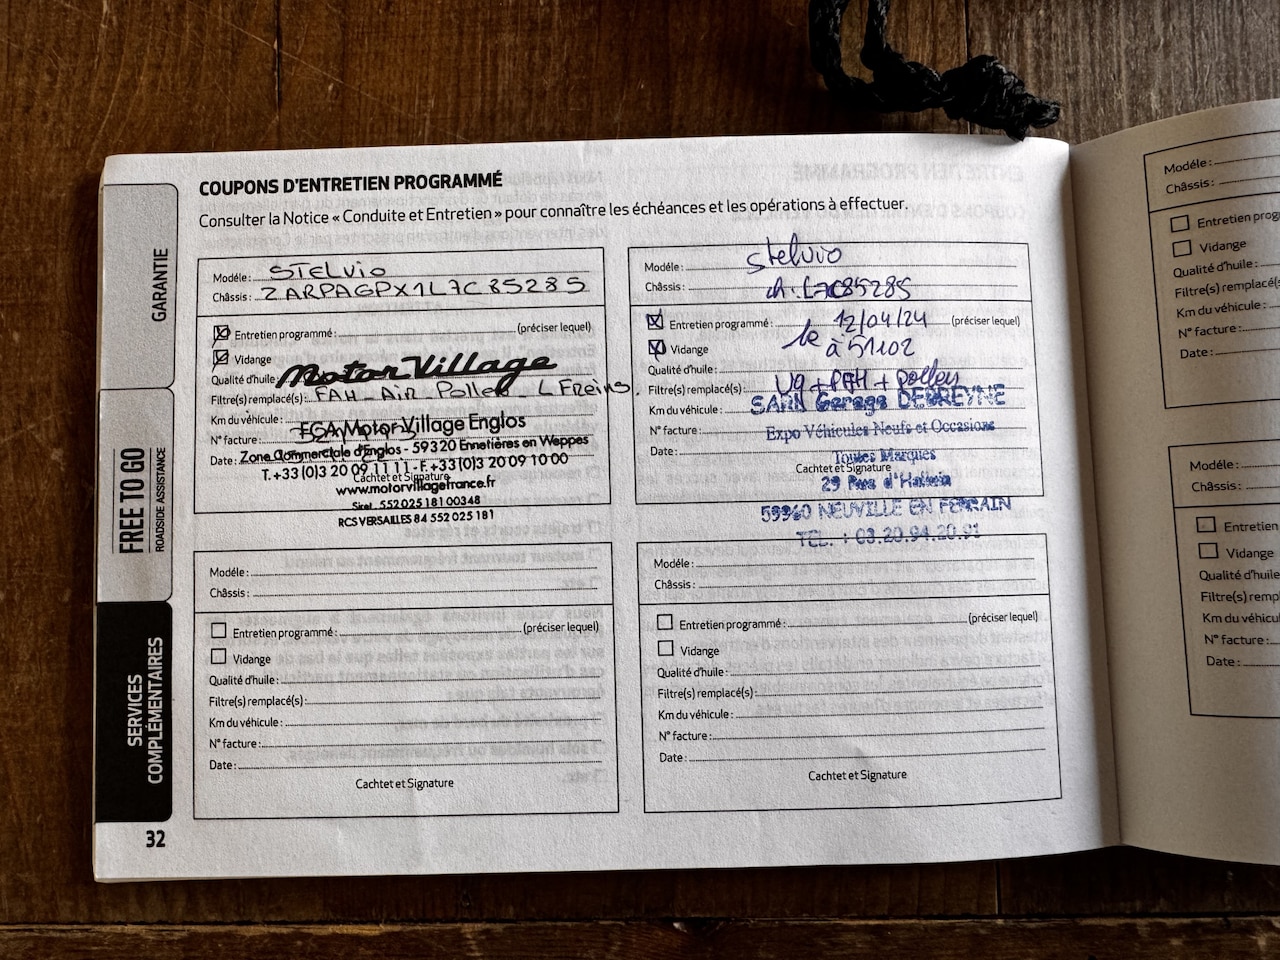 COUPONS D'ENTRETIEN PROGRAMMÉ
Consulter la Notice « Conduite et Entretien » pour connaître les échéances et les opérations à effectuer.
GARANTIE
FREE TO GO
ROADSIDE ASSISTANCE
SERVICES
COMPLÉMENTAIRES
32
Modéle : STELVIO
Châssis : ZARPAGPX1L7C85285
Entretien programmé : (préciser lequel)
Vidange
Qualité d'huile
Motor Village
Filtre(s) remplacé(s) : FAH - Air - Pollen - L Freins.
Km du véhicule :
N° facture :
FCA Motor Village Englos
Date :
Zone Commerciale d'Englos - 59320 Ennetières en Weppes
T. +33 (0)3 20 09 11 11 - F. +33 (0)3 20 09 10 00
Cachtet et Signature
www.motorvillagefrance.fr
Siret. 552 025 181 00348
RCS VERSAILLES 84 552 025 181
Modéle : Stelvio
Châssis : ch. L7C85285
Entretien programmé : (préciser lequel)
le 12/04/24
Vidange
à 51102
Qualité d'huile :
Filtre(s) remplacé(s) : + pollen
Km du véhicule :
Garage DEBREYNE
N° facture :
Expo Véhicules Neufs et Occasions
Date :
Toutes Marques
Cachtet et Signature
29 Rue d'Halluin
59960 NEUVILLE EN FERRAIN
TEL. : 03.20.94.20.91
Modéle :
Châssis :
Entretien programmé : (préciser lequel)
Vidange
Qualité d'huile :
Filtre(s) remplacé(s) :
Km du véhicule :
N° facture :
Date :
Cachtet et Signature
Modéle :
Châssis :
Entretien programmé : (préciser lequel)
Vidange
Qualité d'huile :
Filtre(s) remplacé(s) :
Km du véhicule :
N° facture :
Date :
Cachtet et Signature
Modéle :
Châssis :
Entretien prog
Vidange
Qualité d'huile :
Filtre(s) remplacé(s
Km du véhicule :
N° facture :
Date :
Modéle :
Châssis :
Entretien
Vidange
Qualité d'huile
Filtre(s) rempl
Km du véhicu
N° facture :
Date :